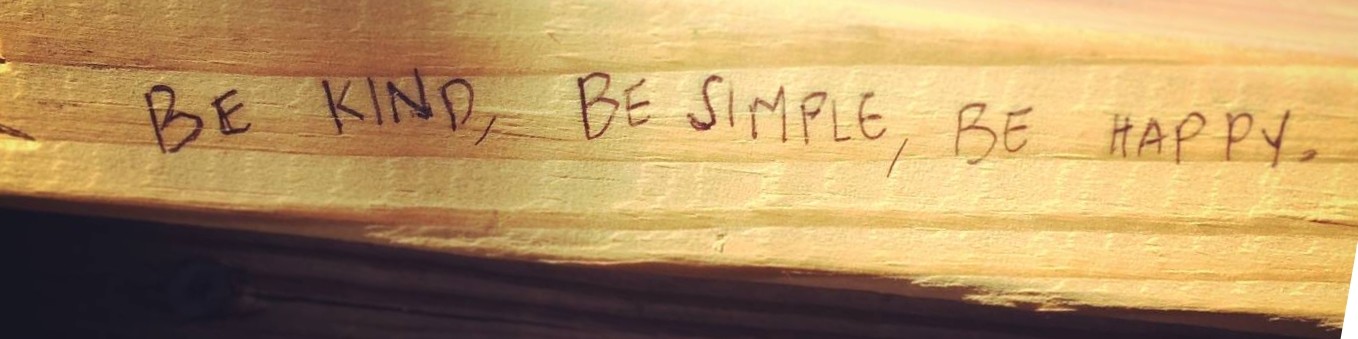 BE KIND, BE SIMPLE, BE HAPPY.